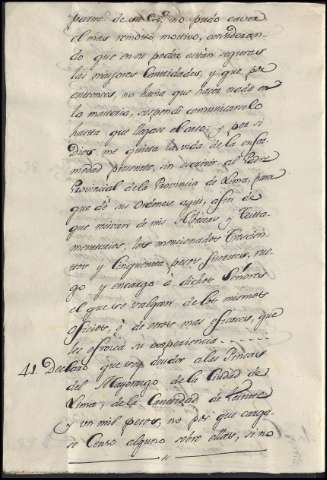 parte de su Exª no pudo caver
el mas remoto motivo, consideran-
do que en su poder estan seguras
las mayores Cantidades, y que por
entonces no havia que hacer nada en
la materia, suspendi comunicarselo
hasta que llegase el caso; y por si
Dios me quitare la vida de la enfer-
medad presente, sin escrivir al Padre
Provincial de la Provincia de Lima, para
que dé sus Ordenes aqui, afin de
que reciban de mis Albaceas y Testa-
mentarios, los mencionados trescien-
tos y cinquenta pesos fuertes, rue-
go y encargo á dichos Señores
el que se valgan de los mismos
oficios, ó de otros mas eficaces, que
les ofresca su experiencia
41 Declaro que soy deudor a las Fincas
del Mayorazgo de la Ciudad de
Lima, de la Cantidad de
y un mil pesos, no por que cargue
Censo alguno sobre ellas, si no